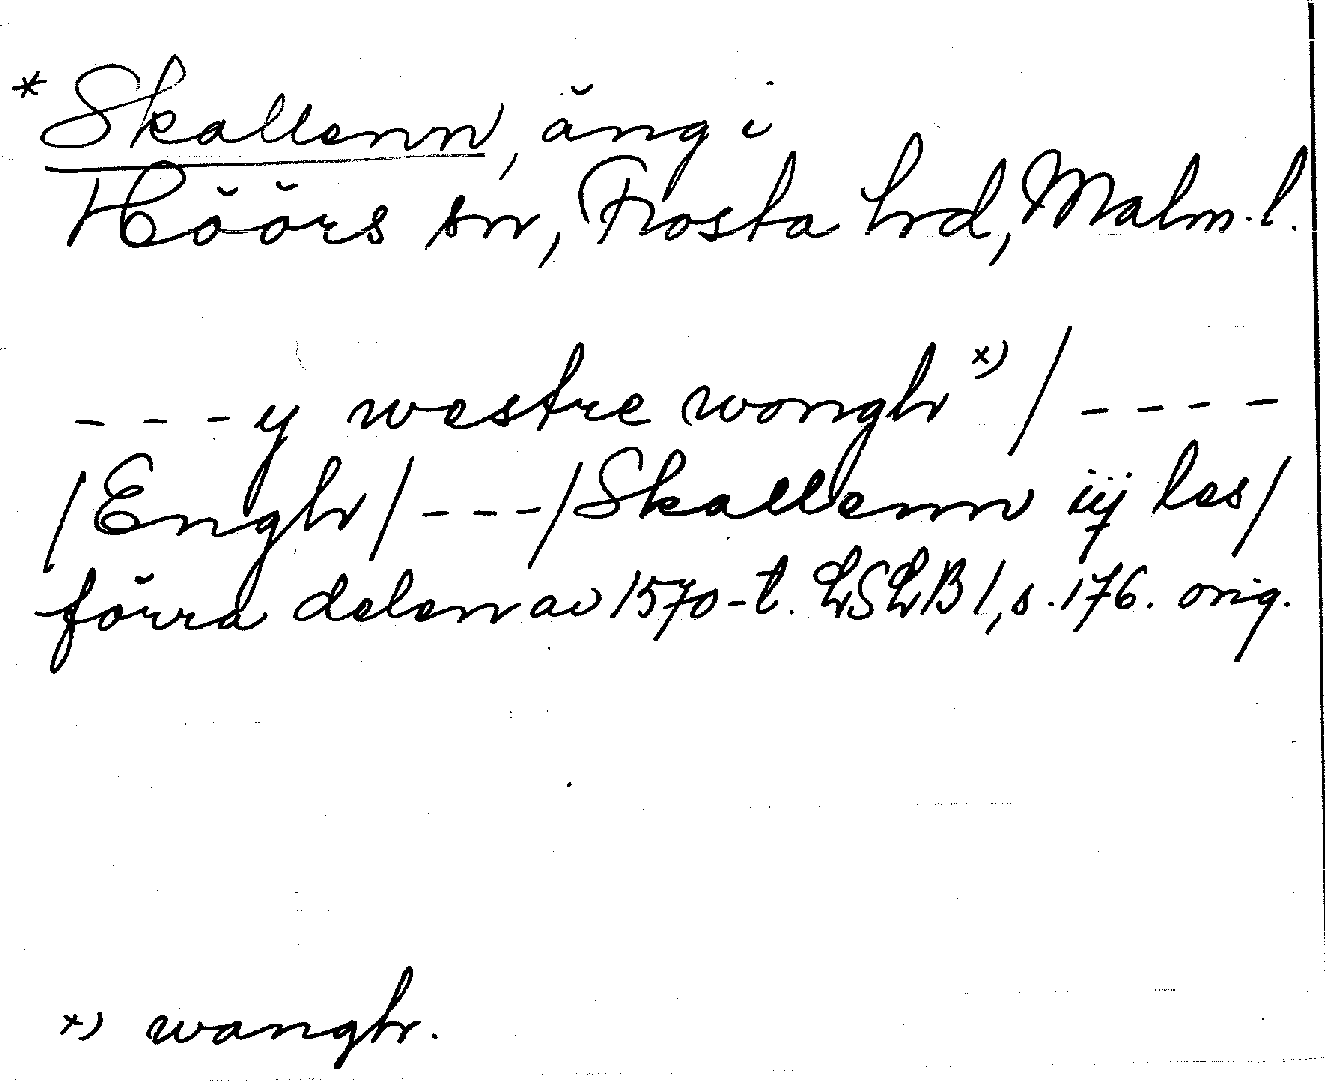 * Skallenn, äng i
Höörs sn, Frosta hrd, Malm. l.
- - - y westre wongh x) / - - - -
/ Engh / - - - / Skallenn iij les /
förra delen av 1570-t. LSLB 1, s. 176. orig.
x) wangh.